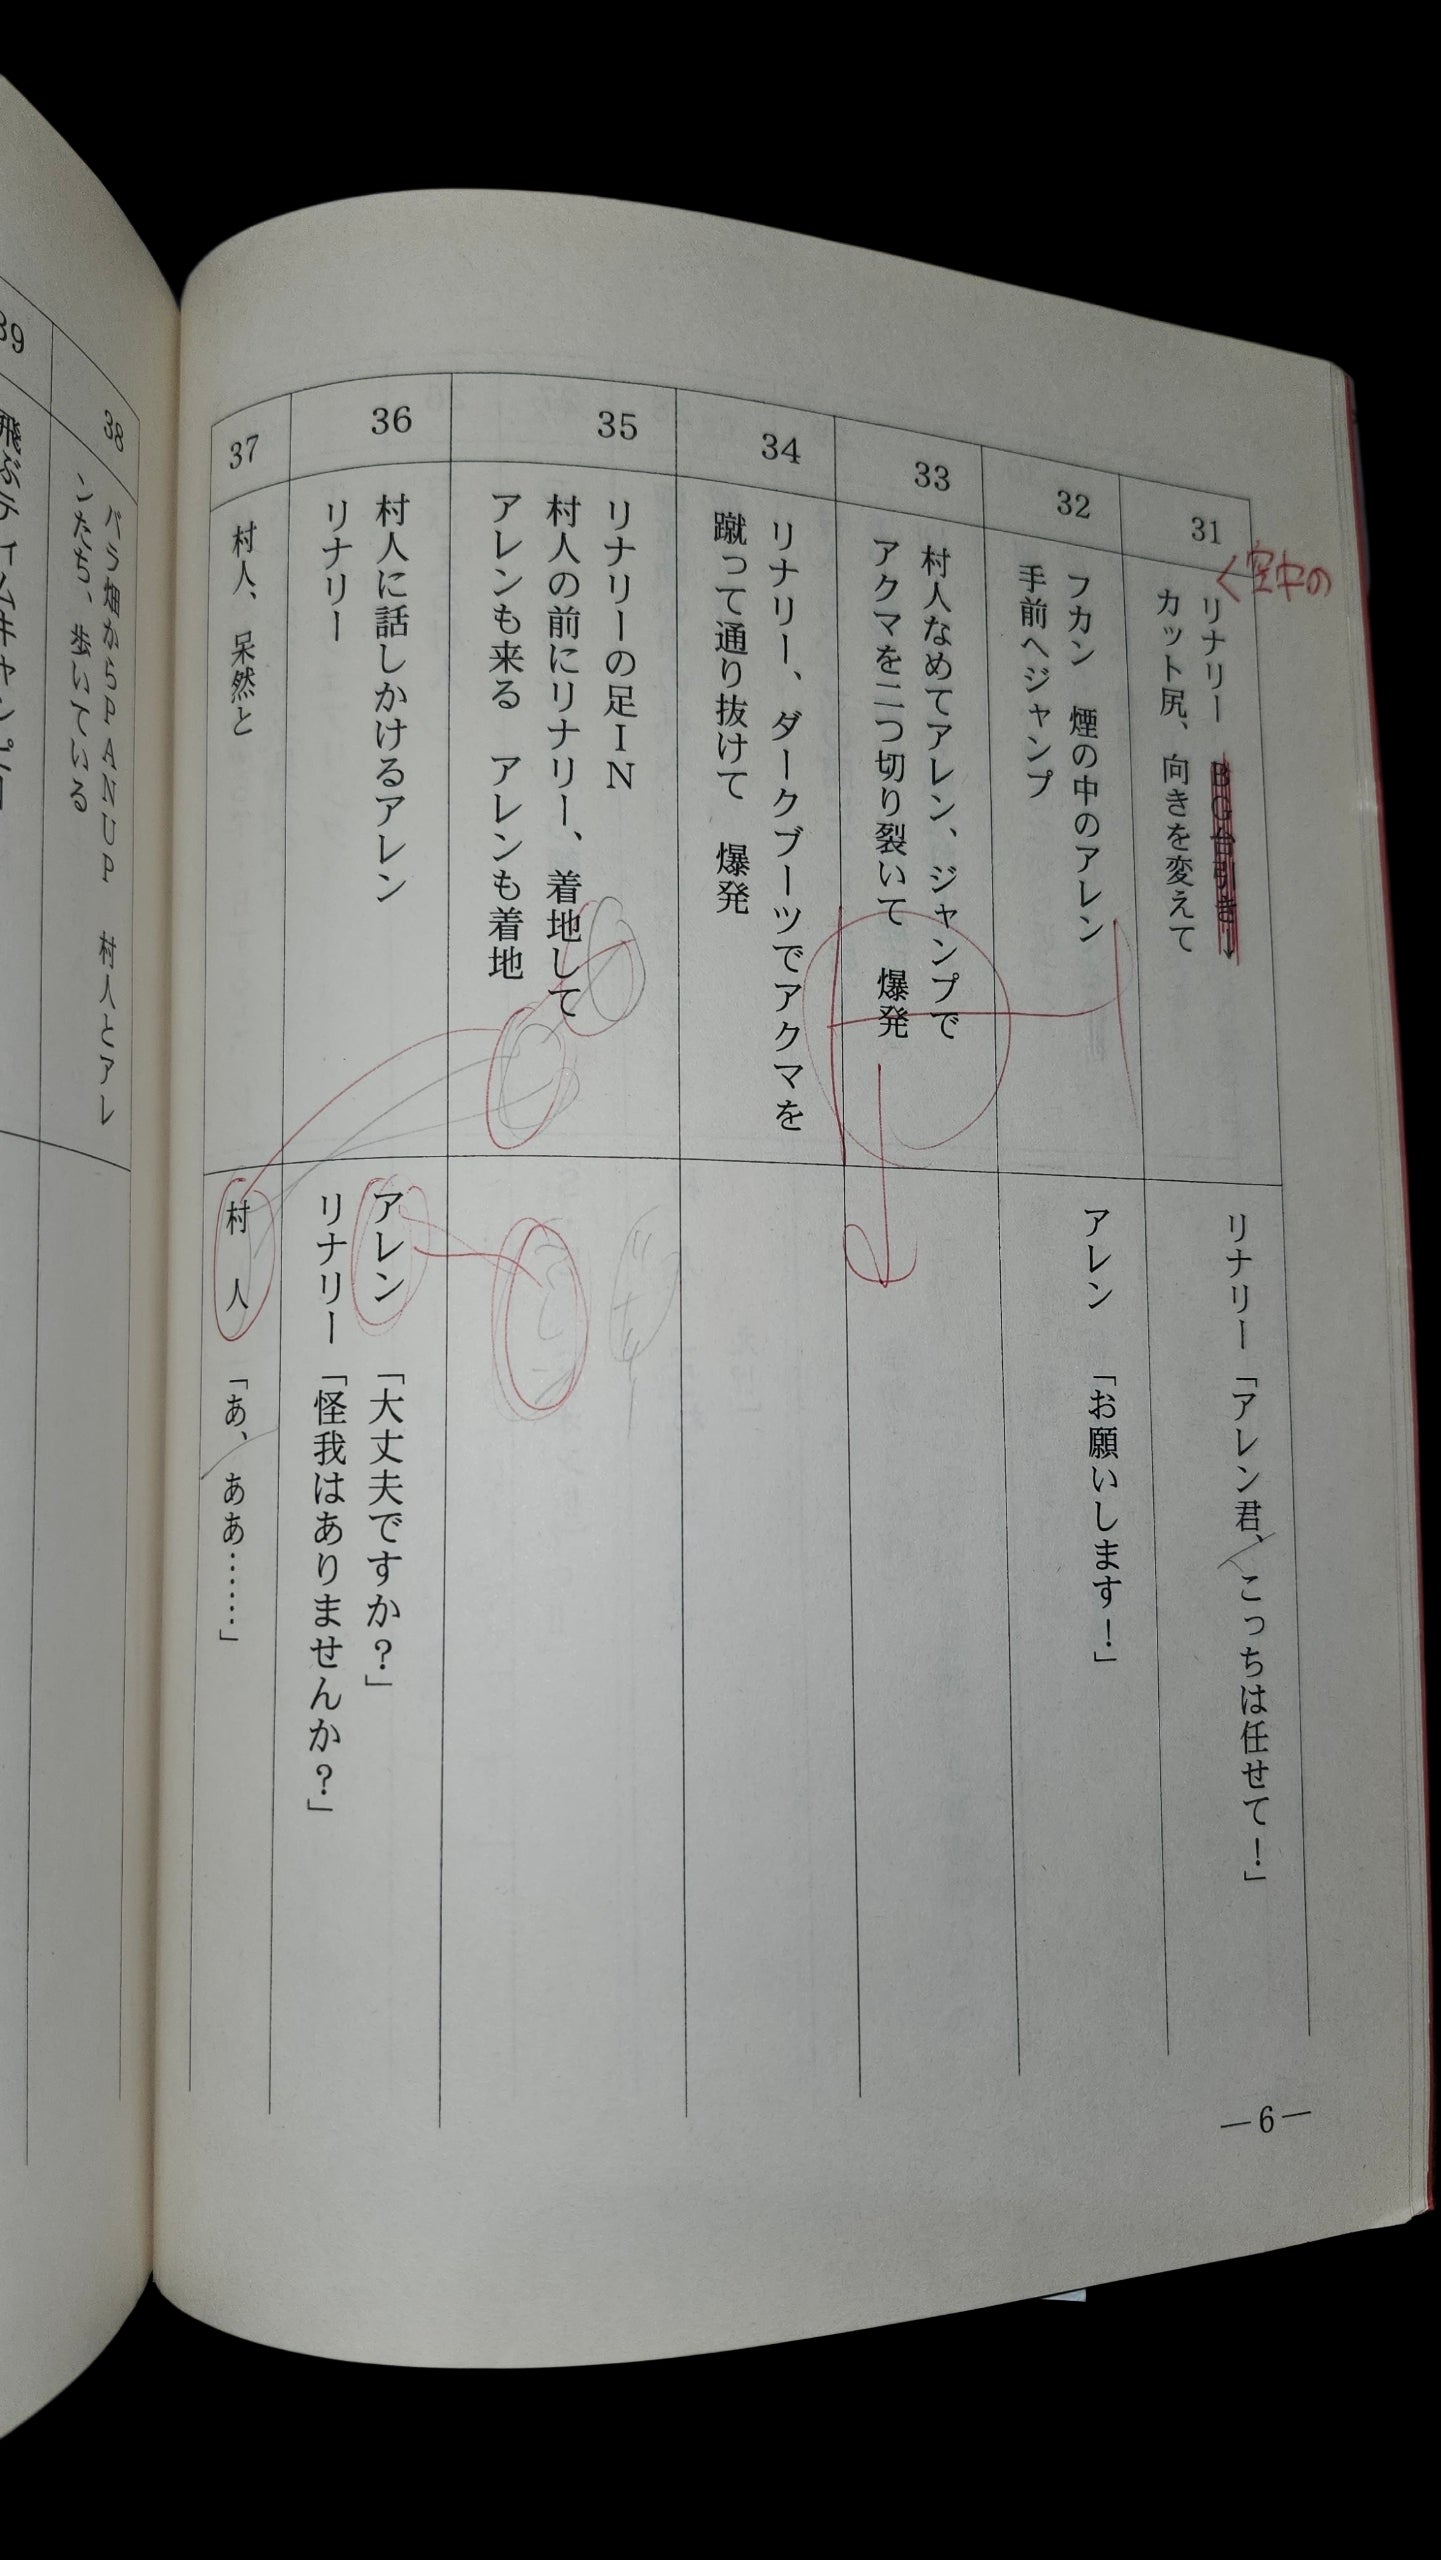 —6—
31
空中の
リナリー BG台引き↓
カット尻、向きを変えて
リナリー「アレン君、こっちは任せて！」
32
フカン 煙の中のアレン
手前へジャンプ
アレン 「お願いします！」
33
村人なめてアレン、ジャンプで
アクマを二つ切り裂いて 爆発
34
リナリー、ダークブーツでアクマを
蹴って通り抜けて 爆発
35
リナリーの足ＩＮ
村人の前にリナリー、着地して
アレンも来る アレンも着地
36
村人に話しかけるアレン
リナリー
アレン 「大丈夫ですか？」
リナリー「怪我はありませんか？」
37
村人、呆然と
村 人 「あ、ああ……」
38
バラ畑からＰＡＮＵＰ 村人とアレ
ンたち、歩いている
39
飛ぶティムキャンピー